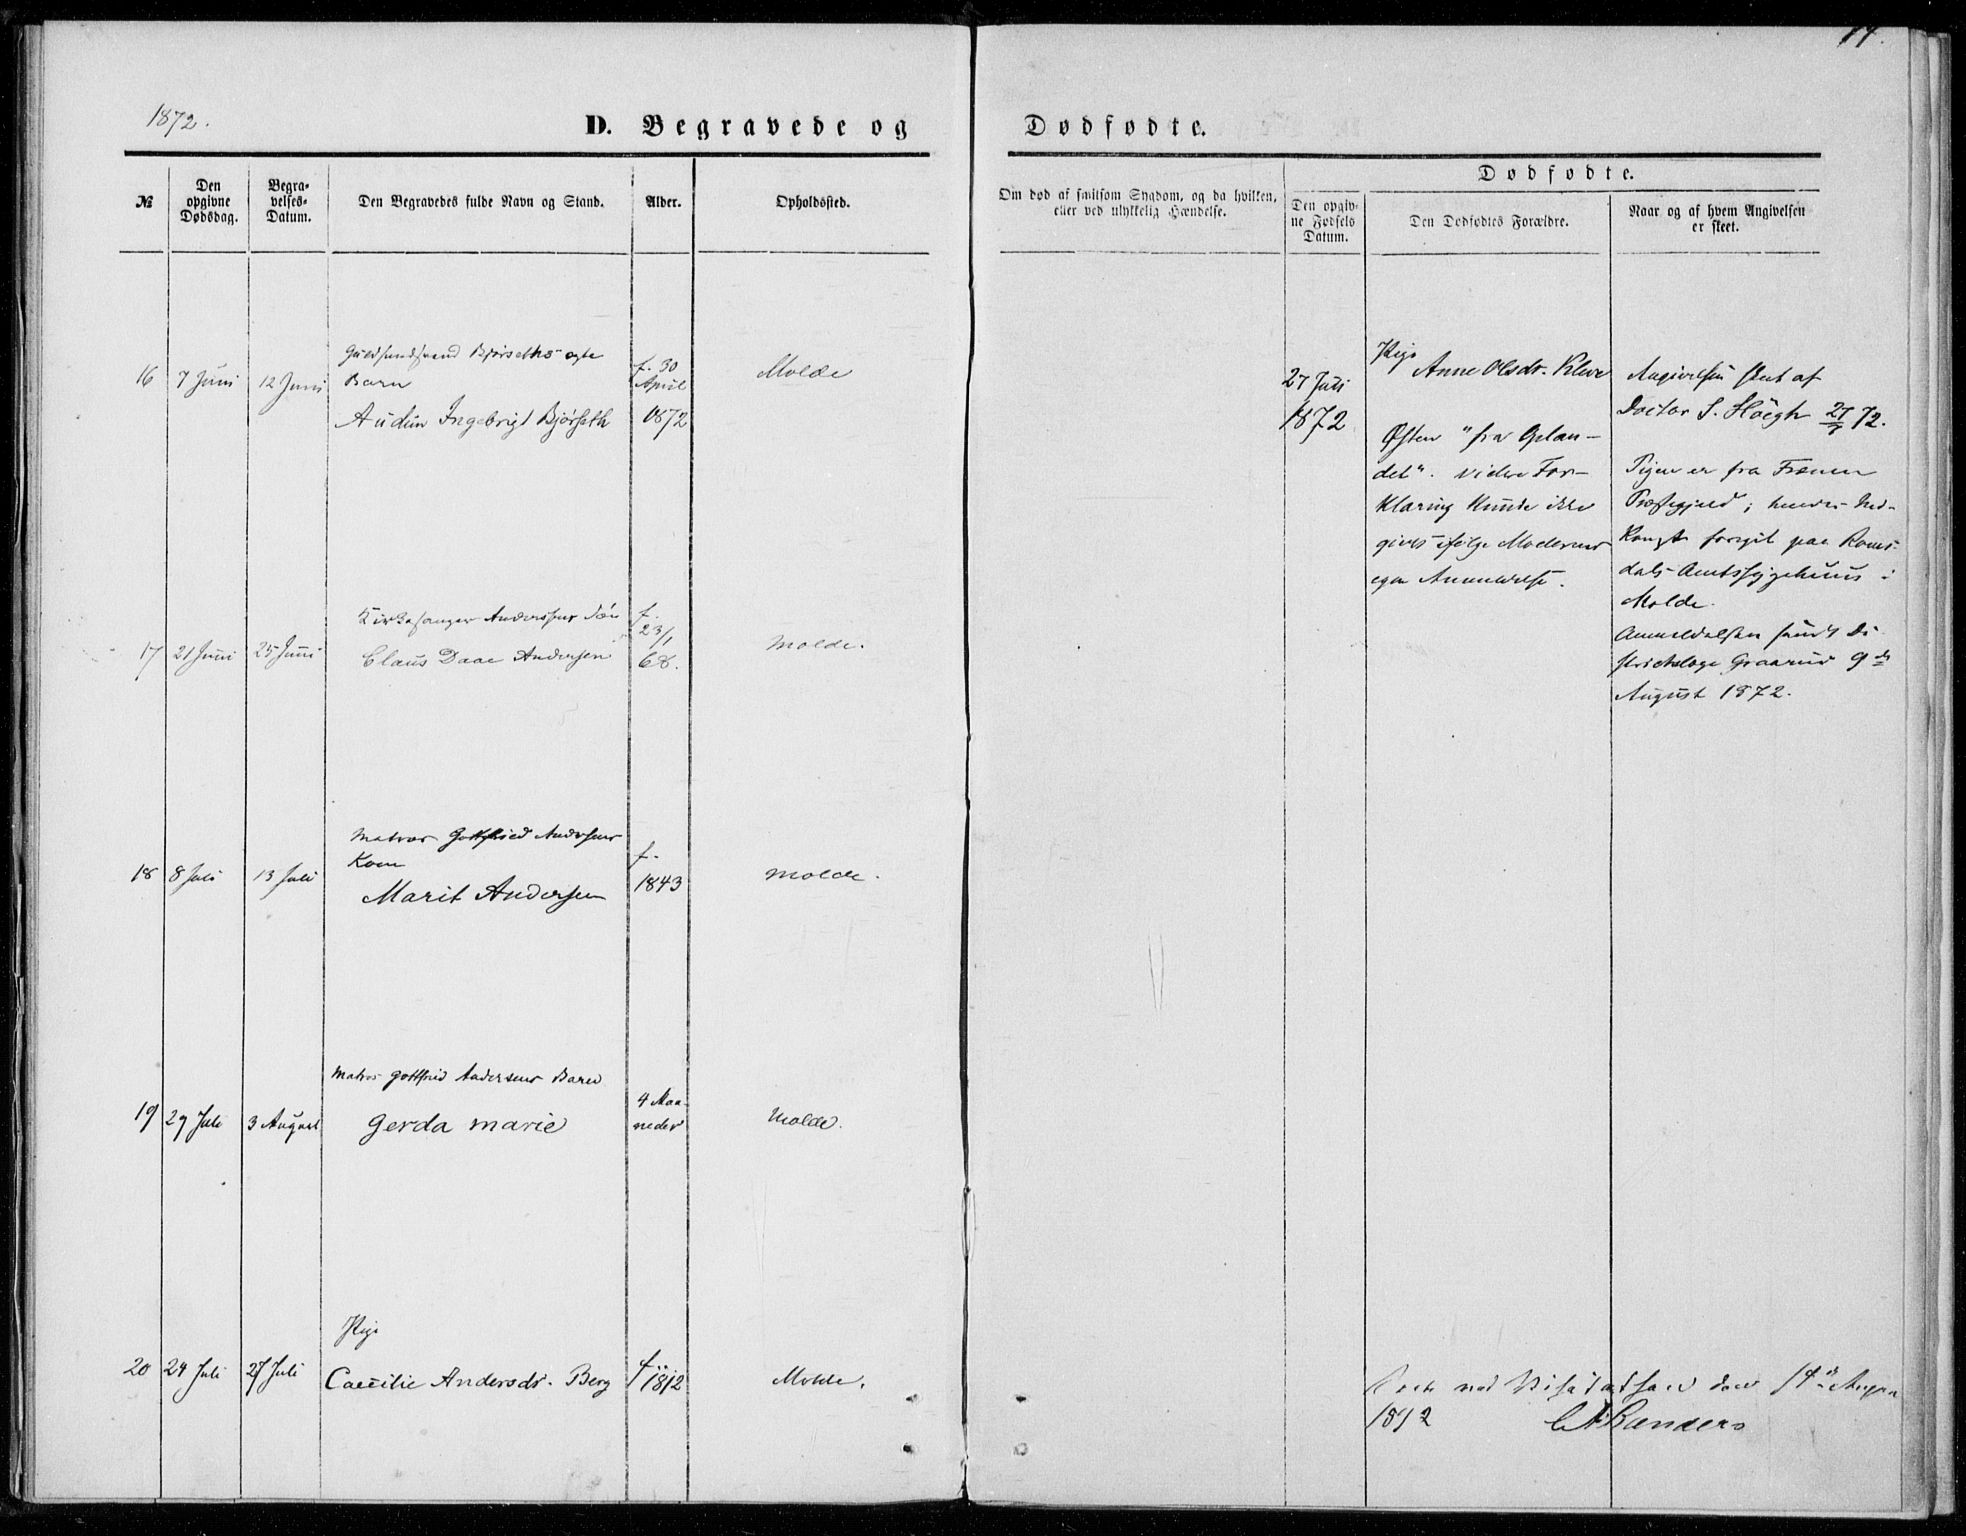 1872.
D. Begravede og
No
Den opgivne Dødsdag.
Begravelses-Datum.
Den Begravedes fulde Navn og Stand.
Alder.
Opholdssted.
16
7 Juni
12 Juni
Bjørseths ægte
Barn
Audun Ingebrigt Bjørseth
f. 30
April
1872
Molde
17
21 Juni
25 Juni
Kirkesanger Anderssens Søn
Claus Daae Andersen
f.
23/1
68.
Molde.
18
8 Juli
13 Juli
Matros Gottfried Andersens
Kone
Marit Andersen
f.
1843
Molde.
19
29 Juli
3 August
Matros Gottfried Andersens Barn
Gerda Marie
4 Maa-
neder
Molde.
20
24 Juli
27 Juli
Pige
Caecilie Andersdr. Berg
f. 1812
Molde.
Dødfødte.
Om død af smitsom Sygdom, og da hvilken,
eller ved ulykkelig Hændelse.
Dødfødte.
Den opgiv-
ne Fødsels
Datum.
Den Dødfødtes Forældre.
Naar og af hvem Angivelsen
er skeet.
27 Juli
1872
Pige
Anne Olsdr.
Østen "fra Oplan-
det". videre For-
klaring kunde ikke
gives ifølge Moderens
egen
Angivelsen skeet af
Doctor S. Høegh 27/7 72.
Pigen er fra Frænen
Præstegjeld; hendes Ned-
komst foregik paa Roms-
dals Amtssygehuus i
Molde.
Anmeldelsen sendt Di-
strictslæge Graarud 9de
August 1872.
ved Visitatsen den 14de August
1872